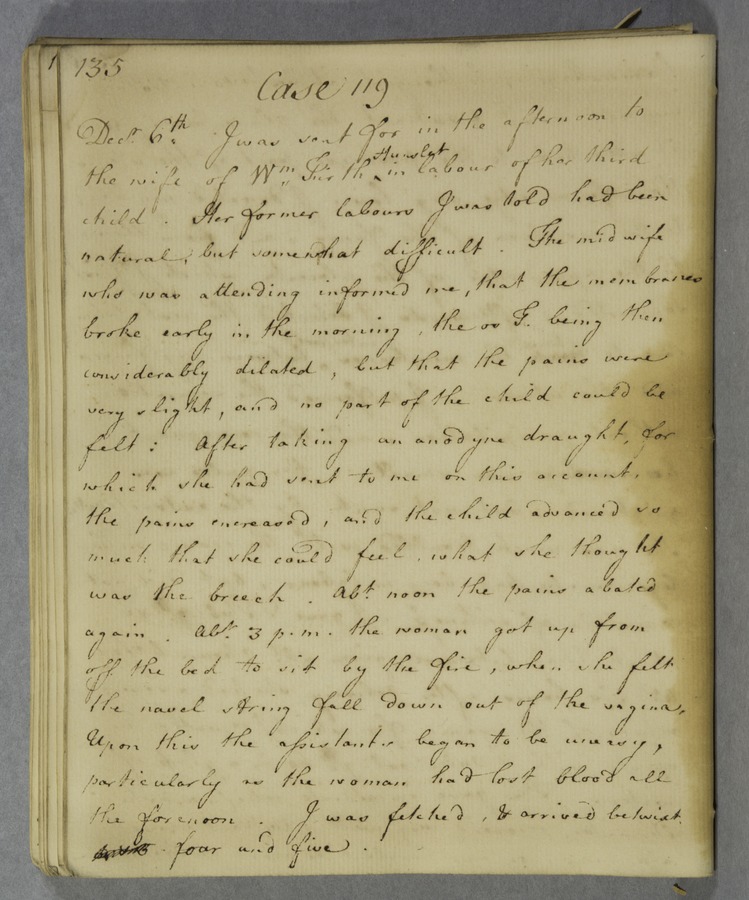 1
135
Case 119
Decr. 6th. I was sent for in the afternoon to
Hunslet
the wife of Wm. Firth ‸ in labour of her third
child. Her former labours I was told had been
natural, but somewhat difficult. The midwife
who was attending informed me, that the membranes
broke early in the morning, the os T. being then
considerably dilated, but that the pains were
very slight, and no part of the child could be
felt: After taking an anodyne draught, for
which she had sent to me on this account,
the pains increased, and the child advanced so
much that she could feel what she thought
was the breech. Abt. noon the pains abated
again. Abt. 3 p.m. the woman got up from
off the bed to sit by the fire, when she felt
the navel string fall down out of the vagina.
Upon this the assistants began to be uneasy,
particularly as the woman had lost blood all
the forenoon. I was fetched, & arrived betwixt
four and five.